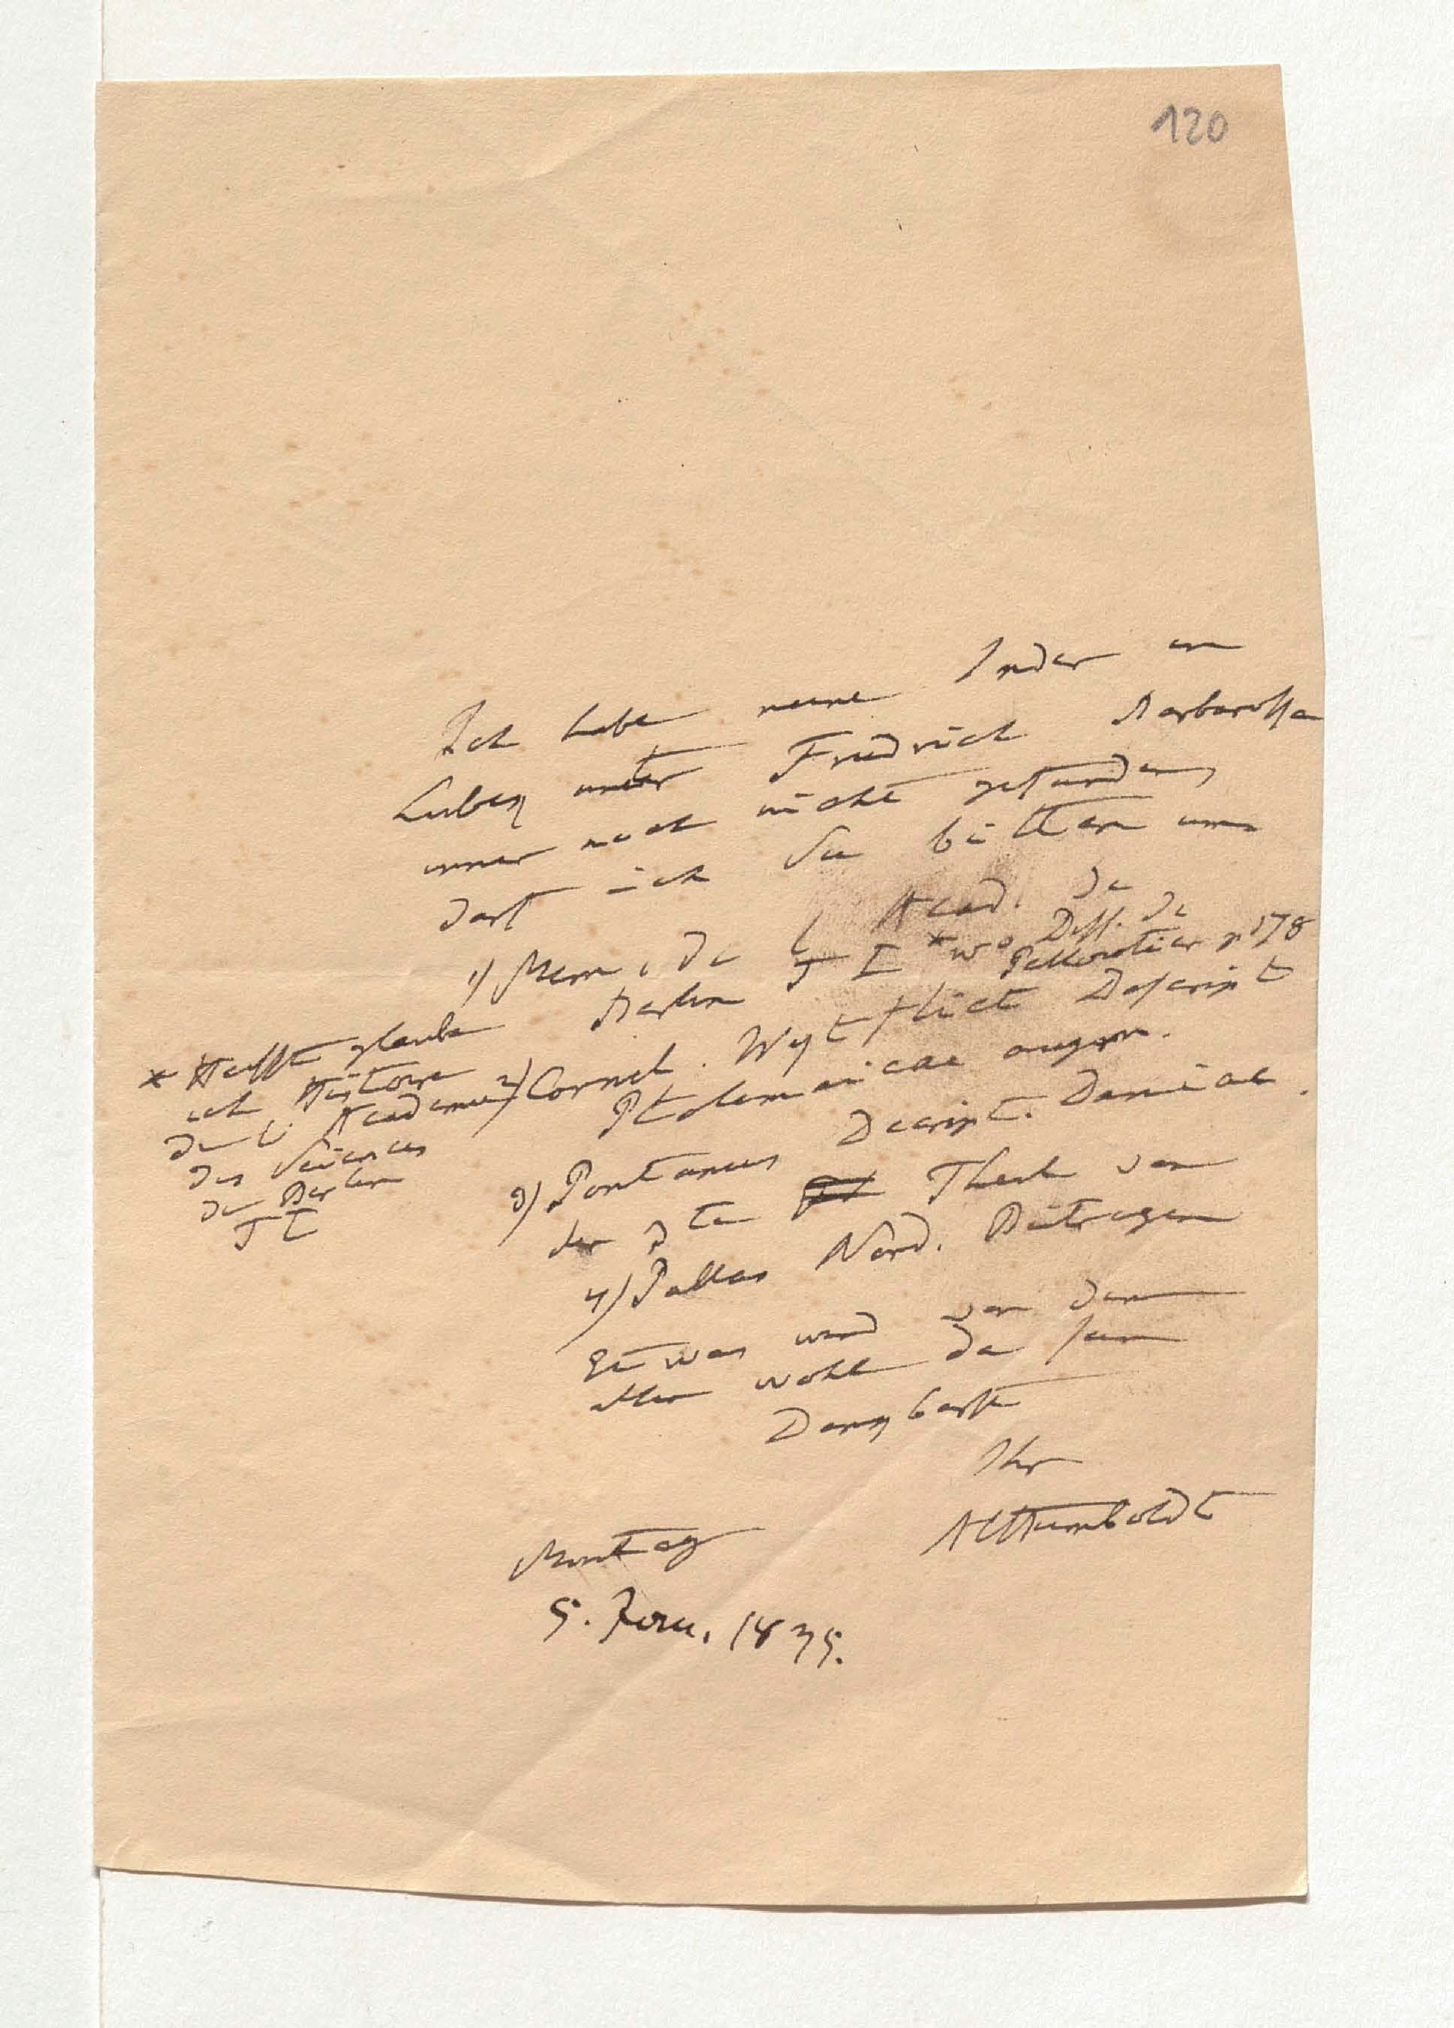 120
Ich habe meine Inder in
Lubek unter Friedrich Barbarossa
immer noch nicht gefunden,
darf ich Sie bitten um
1) Mem. de l Acad. de
Berlin T I *wo Diss. de
Pelloutier p 178
2) Cornel. Wytfliet Descript
Ptolemaicae augm.
3) Pontanus Descript. Daniae.
der 3te Theil von
4) Pallas Nord. Beitragen
Etwas wird von dem
allen wohl da sein
Dankbarst
Ihr
AlHumboldt
Montag
5. Janu. 1835.
* Heisst glaube
ich Histoire
de l. Academie
des Sciences
de Berlin
T I